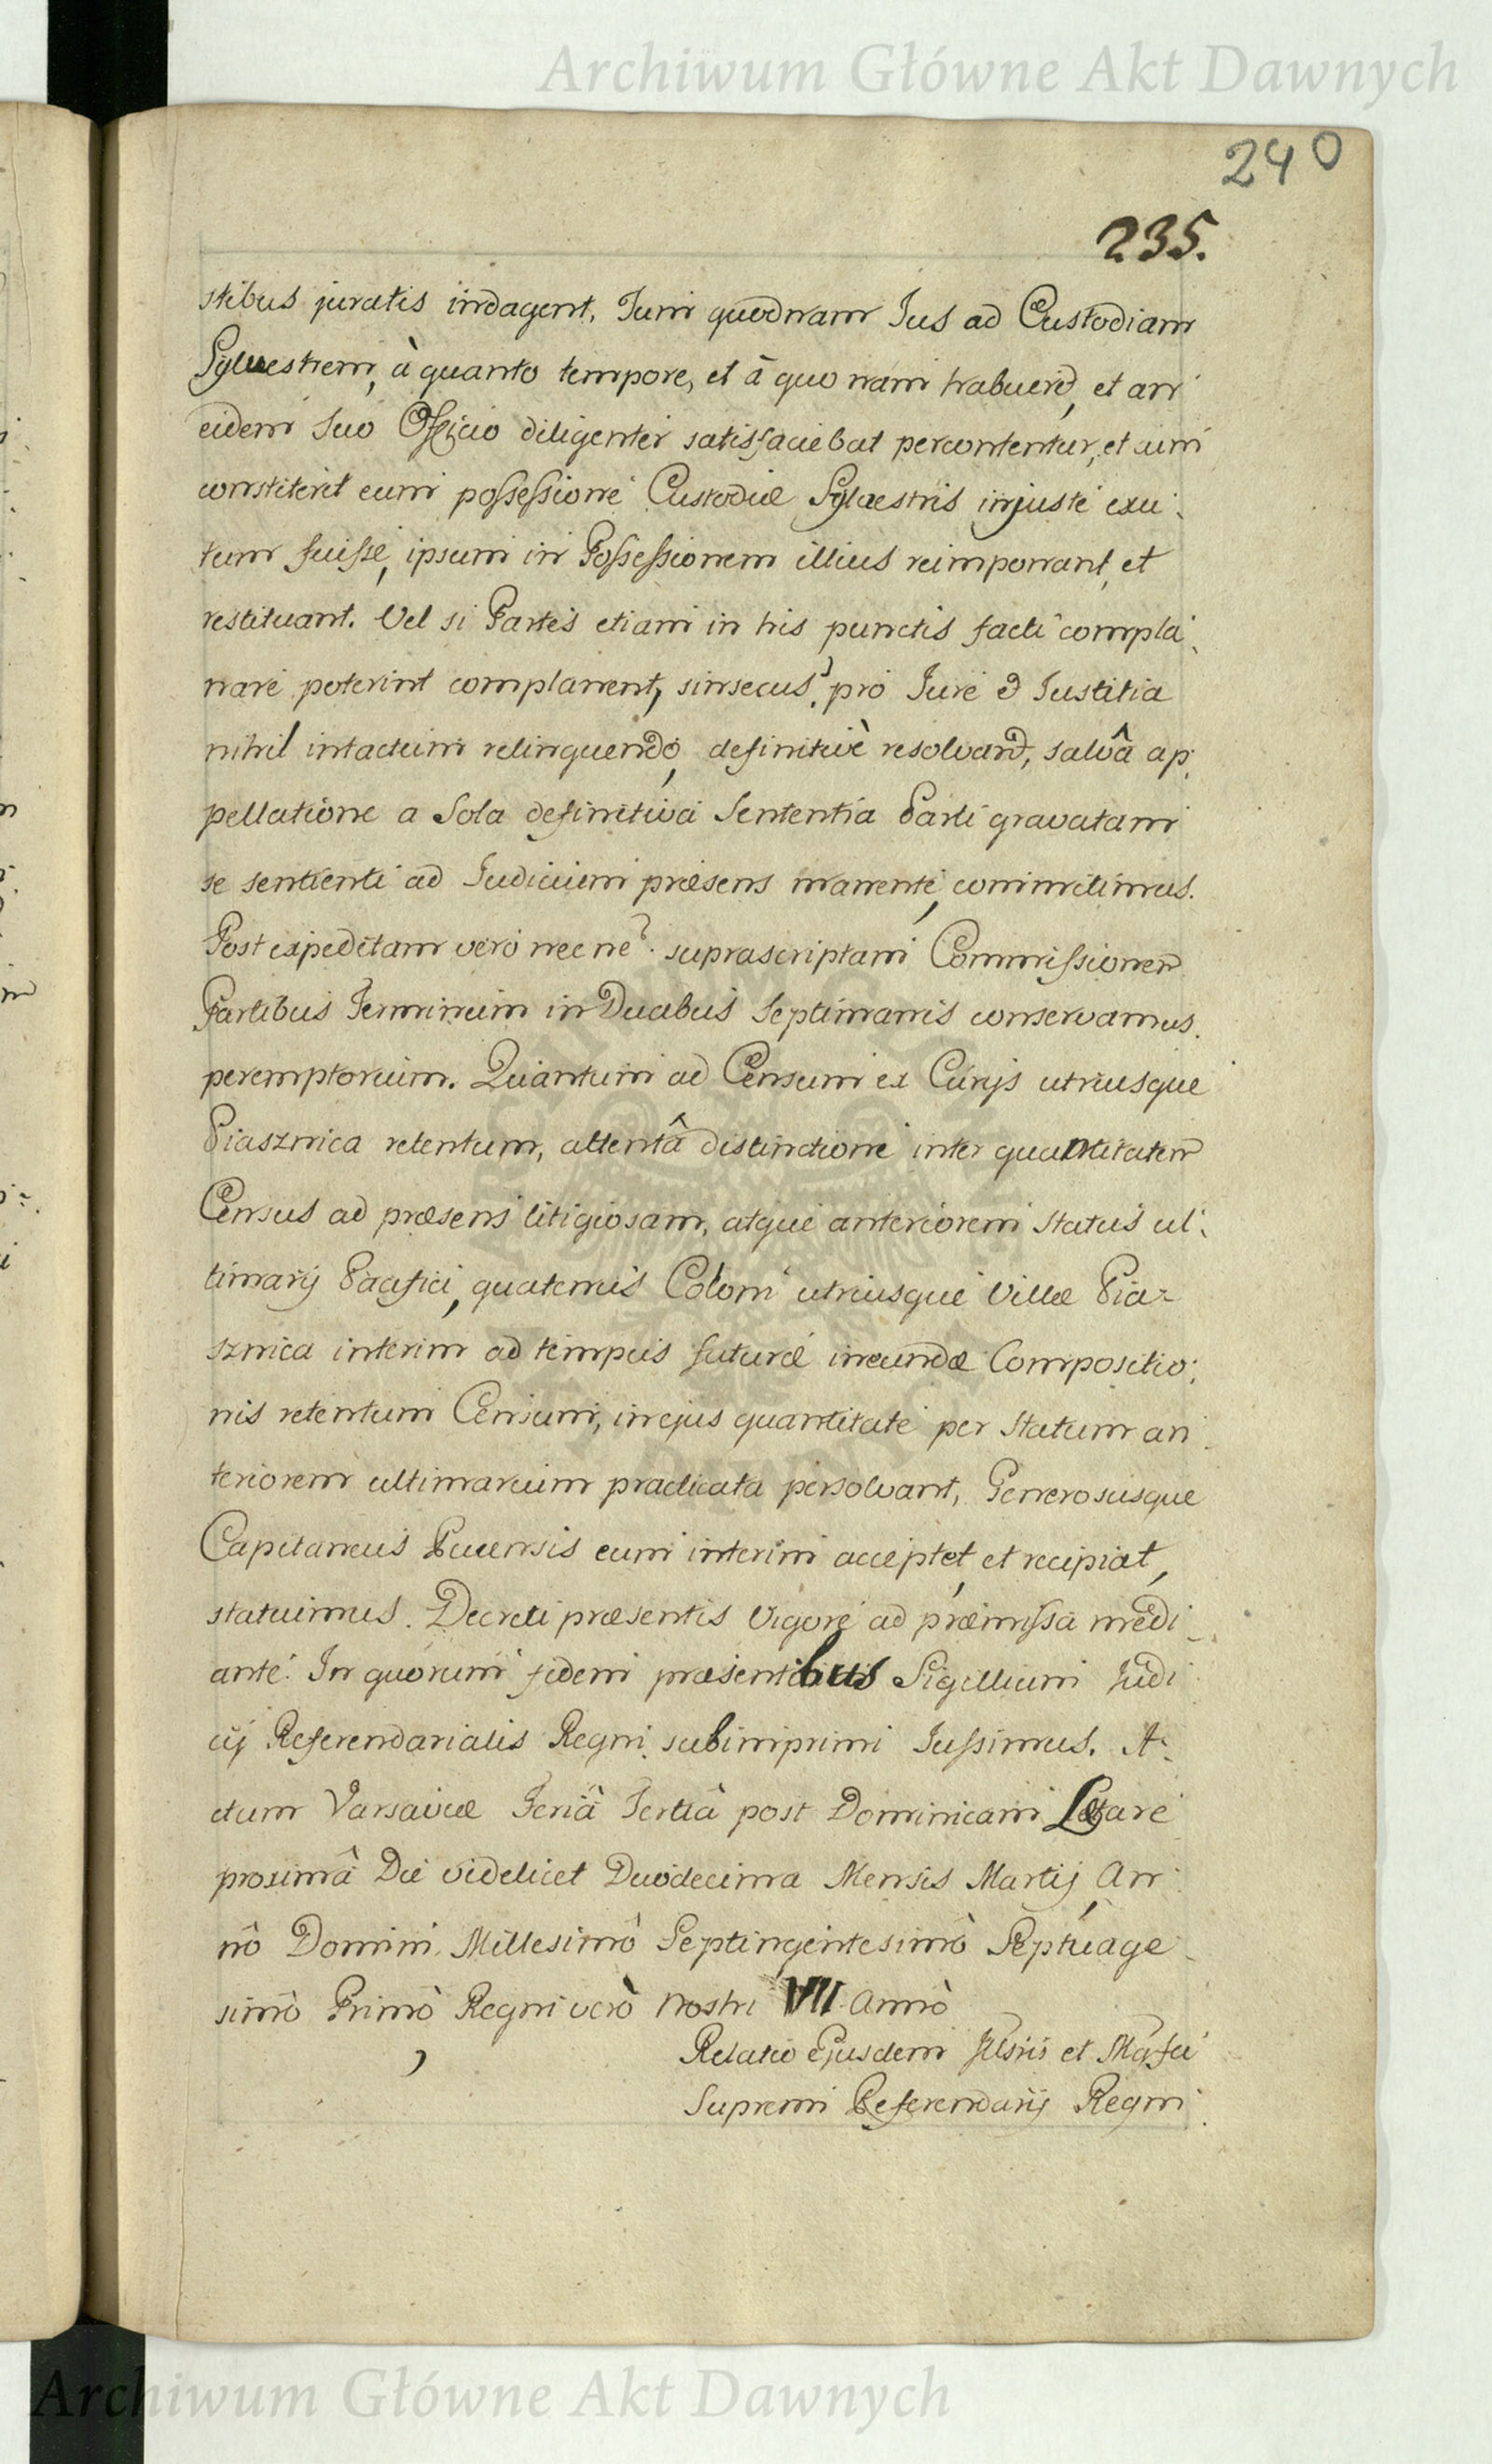 Archiwum Główne Akt Dawnych
240
235.
stibus juratis indagent, Tum quodnam Jus ad Custodiam
Sylvestrem, à quanto tempore, et â quo nam habuerit, et an
eidem suo Officio diligenter satisfaciebat percontentur, et cum
constiterit eum possessione Custodiæ Sylvestris injuste exu-
tum fuisse, ipsum in Possessionem illius reimponant, et
restituant. Vel si Partes etiam in his punctis facti compla-
nare poterint complanent, sinsecus, pro Jure et Justitia
nihil intactum relinquendo, definitivè resolvant, salvâ ap-
pellatione a Sola definitiva Sententia Parti gravatam
se sentienti ad Judicium præsens manente, committimus.
Post expeditam vero nec ne suprascriptam Commissionem
Partibus Terminum in Duabus Septimanis conservamus
peremptorium. Quantum ad Censum ex Curijs utriusque
Piasznica retentum, attentâ distinctione inter quantitatem
Census ad præsens litigiosam, atque anteriorem Status ul-
timarij Pacifici, quatenus Coloni utriusque Villæ Pia-
sznica interim ad tempus futuræ ineundæ Compositio-
nis retentum Censum, in ejus quantitate per Statum an-
teriorem ultimarium praedicata persolvant, Generosusque
Capitaneus Pucensis eum interim acceptet et recipiat,
statuimus. Decreti præsentis Vigore ad præmissa medi-
ante. In quorum fidem præsentibus Sigillum Judi-
cij Referendarialis Regni subimprimi Jussimus. A-
ctum Varsaviæ Feriâ Tertiâ post Dominicam Lætare
proximâ Die videlicet Duodecima Mensis Martij An-
nô Domini Millesimô Septingentesimô Septuage-
simô Primô Regni verò nostri VII Annô
Relatio Ejusdem Illsris et Mgfci
Supremi Referendarij Regni
Archiwum Główne Akt Dawnych